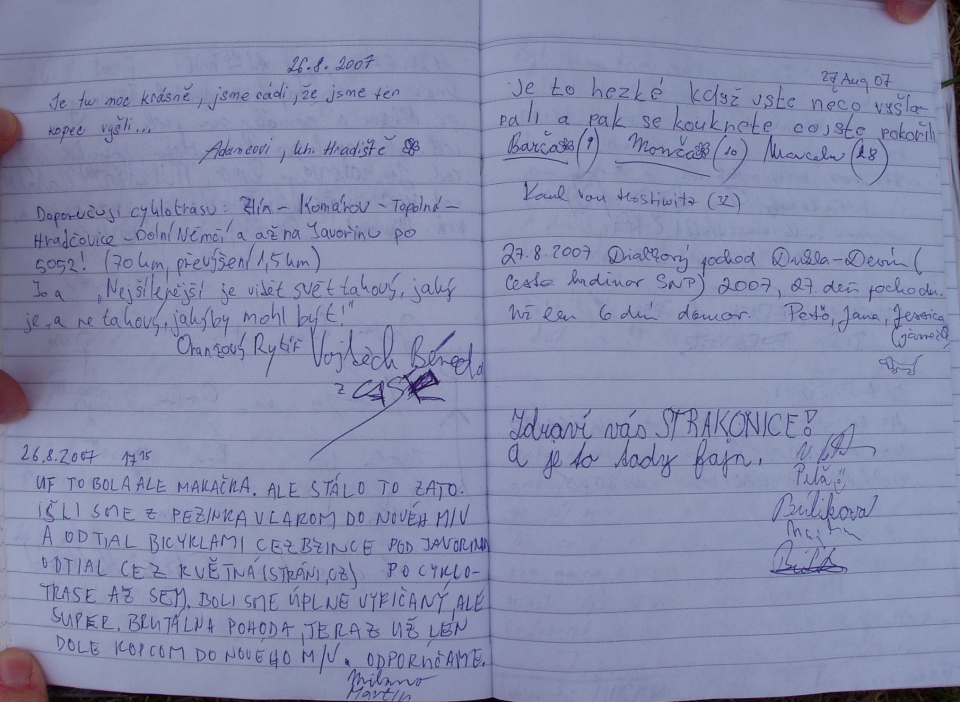 26.8.2007
Je tu moc krásně, jsme rádi, že jsme ten
kopec vyšli...
Adamcovi, Uh. Hradiště
Doporučuji cyklotrasu: Zlín - Komárov - Topolná -
Hradčovice - Dolní Němčí a až na Javořinu po
5052! (70 km, převýšení 1,5 km)
Jo a „Nejšílepější je vidět svět takový, jaký
je, a ne takový, jaký by mohl být!"
Oranžový Rytíř Vojtěch
z
26.8.2007 17 15
UF TO BOLA ALE MAKAČKA. ALE STÁLO TO ZATO.
IŠLI SME Z PEZINKA VLAKOM DO NOVÉH M/V
A ODTIAL BICYKLAMI CEZ BZINCE POD JAVORINOU
ODTIAL CEZ KVĚTNÁ (STRÁNI, CZ) PO CYKLO-
TRASE AŽ SEM. BOLI SME ÚPLNE VYFIČANÝ, ALE
SUPER. BRUTÁLNA POHODA, TERAZ UŽ LEN
DOLE KOPCOM DO NOVÉHO M/V. ODPORÚČAME.
Milano
Martin
27 Aug 07
Je to hezké když jste něco vyšla-
pali a pak se kouknete co jste pokořili
Barča (9) Monča (10) Marcela (28)
Karel von
27.8.2007 Diaľkový pochod Dukla - Devín (
Cesta hrdinov SNP) 2007, 27. deň pochodu.
Už len 6 dní domov. Peťo, Jana, Jessica
Zdraví vás STRAKONICE!
a je to tady fajn.
Bulikova